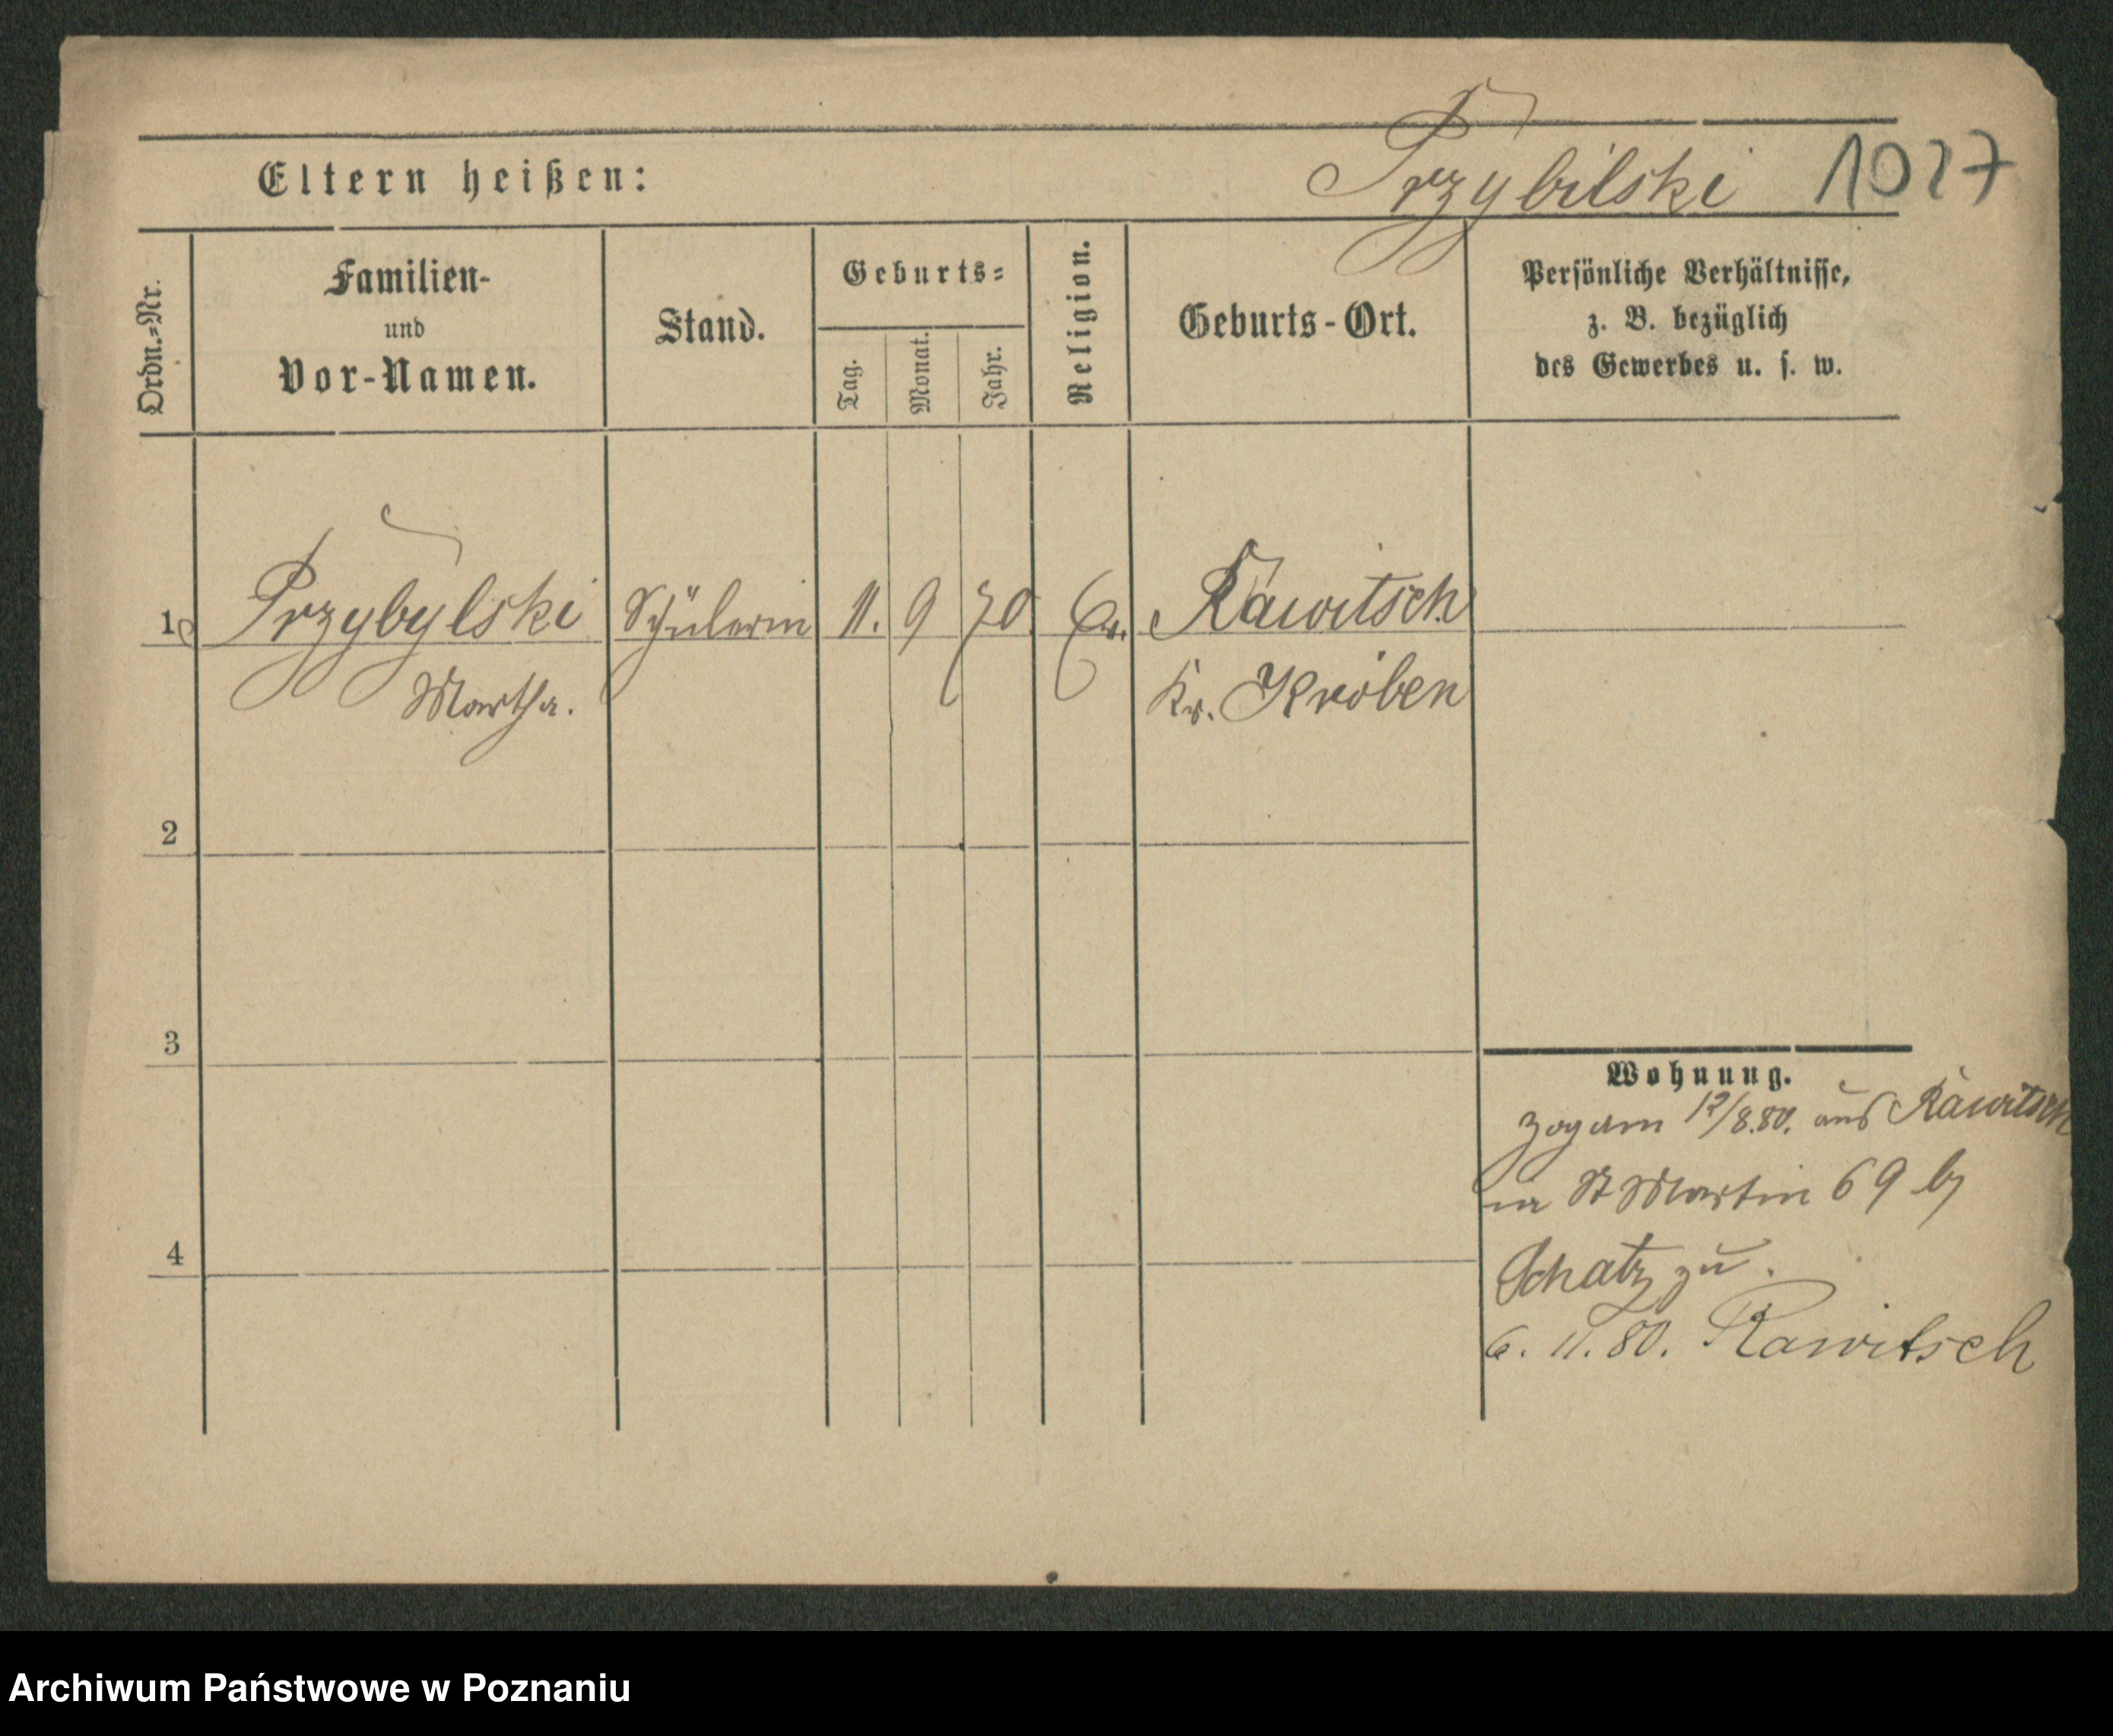 Przybilski 1027
Eltern heißen:
Ordn.=Nr.
Familien-
und
Vor-Namen.
Stand.
Geburts=
Tag.
Monat.
Jahr.
Religion.
Geburts-Ort.
Persönliche Verhältnisse,
z. B. bezüglich
des Gewerbes u. s. w.
1 Przybylski Schülerin 11. 9 70 Ev. Rawitsch
Martha. Kr. Kröben
2
3
4
Wohnung.
Zog am 12/8.80. aus Rawitsch
in St Martin 69 b/
Schatz zu.
6. 11. 80. Rawitsch
Archiwum Państwowe w Poznaniu